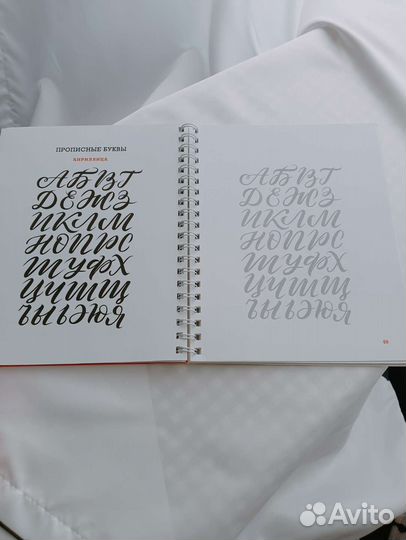 ПРОПИСНЫЕ БУКВЫ
КИРИЛЛИЦА
АБВГ
ДЕЖЗ
ИКЛМ
НОПРС
ТУФХ
ЦЧШЩ
ЪЫЬЭЮЯ
АБВГ
ДЕЖЗ
ИКЛМ
НОПРС
ТУФХ
ЦЧШЩ
ЪЫЬЭЮЯ
Avito